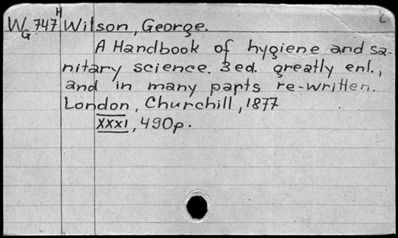 H
W 747 Wilson, George.
G
A Handbook of hygiene and sa-
nitary science. 3 ed. greatly enl.,
and in many parts re-written.
London, Churchill, 1877
XXXI, 490p.